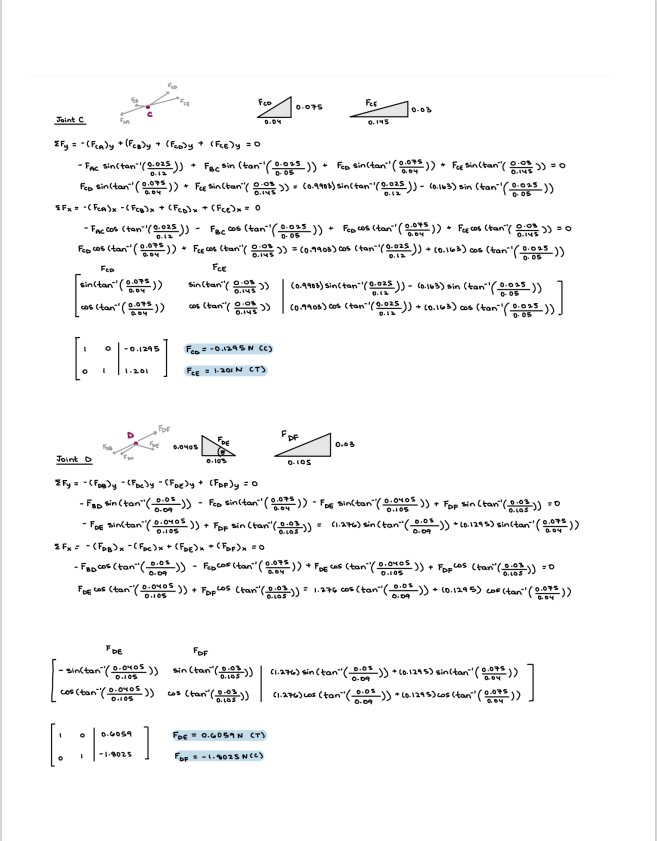 F_CD
F_CB F_CE
F_CA C
Joint C
F_CD 0.075
0.04
F_CE 0.03
0.145
ΣFy = -(F_CA)y + (F_CB)y + (F_CD)y + (F_CE)y = 0
- F_AC sin(tan⁻¹(0.025/0.12)) + F_BC sin(tan⁻¹(0.025/0.05)) + F_CD sin(tan⁻¹(0.075/0.04)) + F_CE sin(tan⁻¹(0.03/0.145)) = 0
F_CD sin(tan⁻¹(0.075/0.04)) + F_CE sin(tan⁻¹(0.03/0.145)) = (0.9903) sin(tan⁻¹(0.025/0.12)) - (0.163) sin(tan⁻¹(0.025/0.05))
ΣFx = -(F_CA)x - (F_CB)x + (F_CD)x + (F_CE)x = 0
- F_AC cos(tan⁻¹(0.025/0.12)) - F_BC cos(tan⁻¹(0.025/0.05)) + F_CD cos(tan⁻¹(0.075/0.04)) + F_CE cos(tan⁻¹(0.03/0.145)) = 0
F_CD cos(tan⁻¹(0.075/0.04)) + F_CE cos(tan⁻¹(0.03/0.145)) = (0.9903) cos(tan⁻¹(0.025/0.12)) + (0.163) cos(tan⁻¹(0.025/0.05))
F_CD F_CE
sin(tan⁻¹(0.075/0.04)) sin(tan⁻¹(0.03/0.145)) | (0.9903) sin(tan⁻¹(0.025/0.12)) - (0.163) sin(tan⁻¹(0.025/0.05))
cos(tan⁻¹(0.075/0.04)) cos(tan⁻¹(0.03/0.145)) | (0.9903) cos(tan⁻¹(0.025/0.12)) + (0.163) cos(tan⁻¹(0.025/0.05))
1 0 | -0.1295 F_CD = -0.1295 N (C)
0 1 | 1.201 F_CE = 1.201 N (T)
D F_DF
F_DB F_DE
F_DC
Joint D
0.0405 F_DE
0.105
F_DF 0.03
0.105
ΣFy = -(F_DB)y - (F_DC)y - (F_DE)y + (F_DF)y = 0
- F_BD sin(tan⁻¹(0.05/0.09)) - F_CD sin(tan⁻¹(0.075/0.04)) - F_DE sin(tan⁻¹(0.0405/0.105)) + F_DF sin(tan⁻¹(0.03/0.105)) = 0
- F_DE sin(tan⁻¹(0.0405/0.105)) + F_DF sin(tan⁻¹(0.03/0.105)) = (1.276) sin(tan⁻¹(0.05/0.09)) + (0.1295) sin(tan⁻¹(0.075/0.04))
ΣFx = -(F_DB)x - (F_DC)x + (F_DE)x + (F_DF)x = 0
- F_BD cos(tan⁻¹(0.05/0.09)) - F_CD cos(tan⁻¹(0.075/0.04)) + F_DE cos(tan⁻¹(0.0405/0.105)) + F_DF cos(tan⁻¹(0.03/0.105)) = 0
F_DE cos(tan⁻¹(0.0405/0.105)) + F_DF cos(tan⁻¹(0.03/0.105)) = 1.276 cos(tan⁻¹(0.05/0.09)) + (0.1295) cos(tan⁻¹(0.075/0.04))
F_DE F_DF
- sin(tan⁻¹(0.0405/0.105)) sin(tan⁻¹(0.03/0.105)) | (1.276) sin(tan⁻¹(0.05/0.09)) + (0.1295) sin(tan⁻¹(0.075/0.04))
cos(tan⁻¹(0.0405/0.105)) cos(tan⁻¹(0.03/0.105)) | (1.276) cos(tan⁻¹(0.05/0.09)) + (0.1295) cos(tan⁻¹(0.075/0.04))
1 0 | 0.6059 F_DE = 0.6059 N (T)
0 1 | -1.8025 F_DF = -1.8025 N (C)